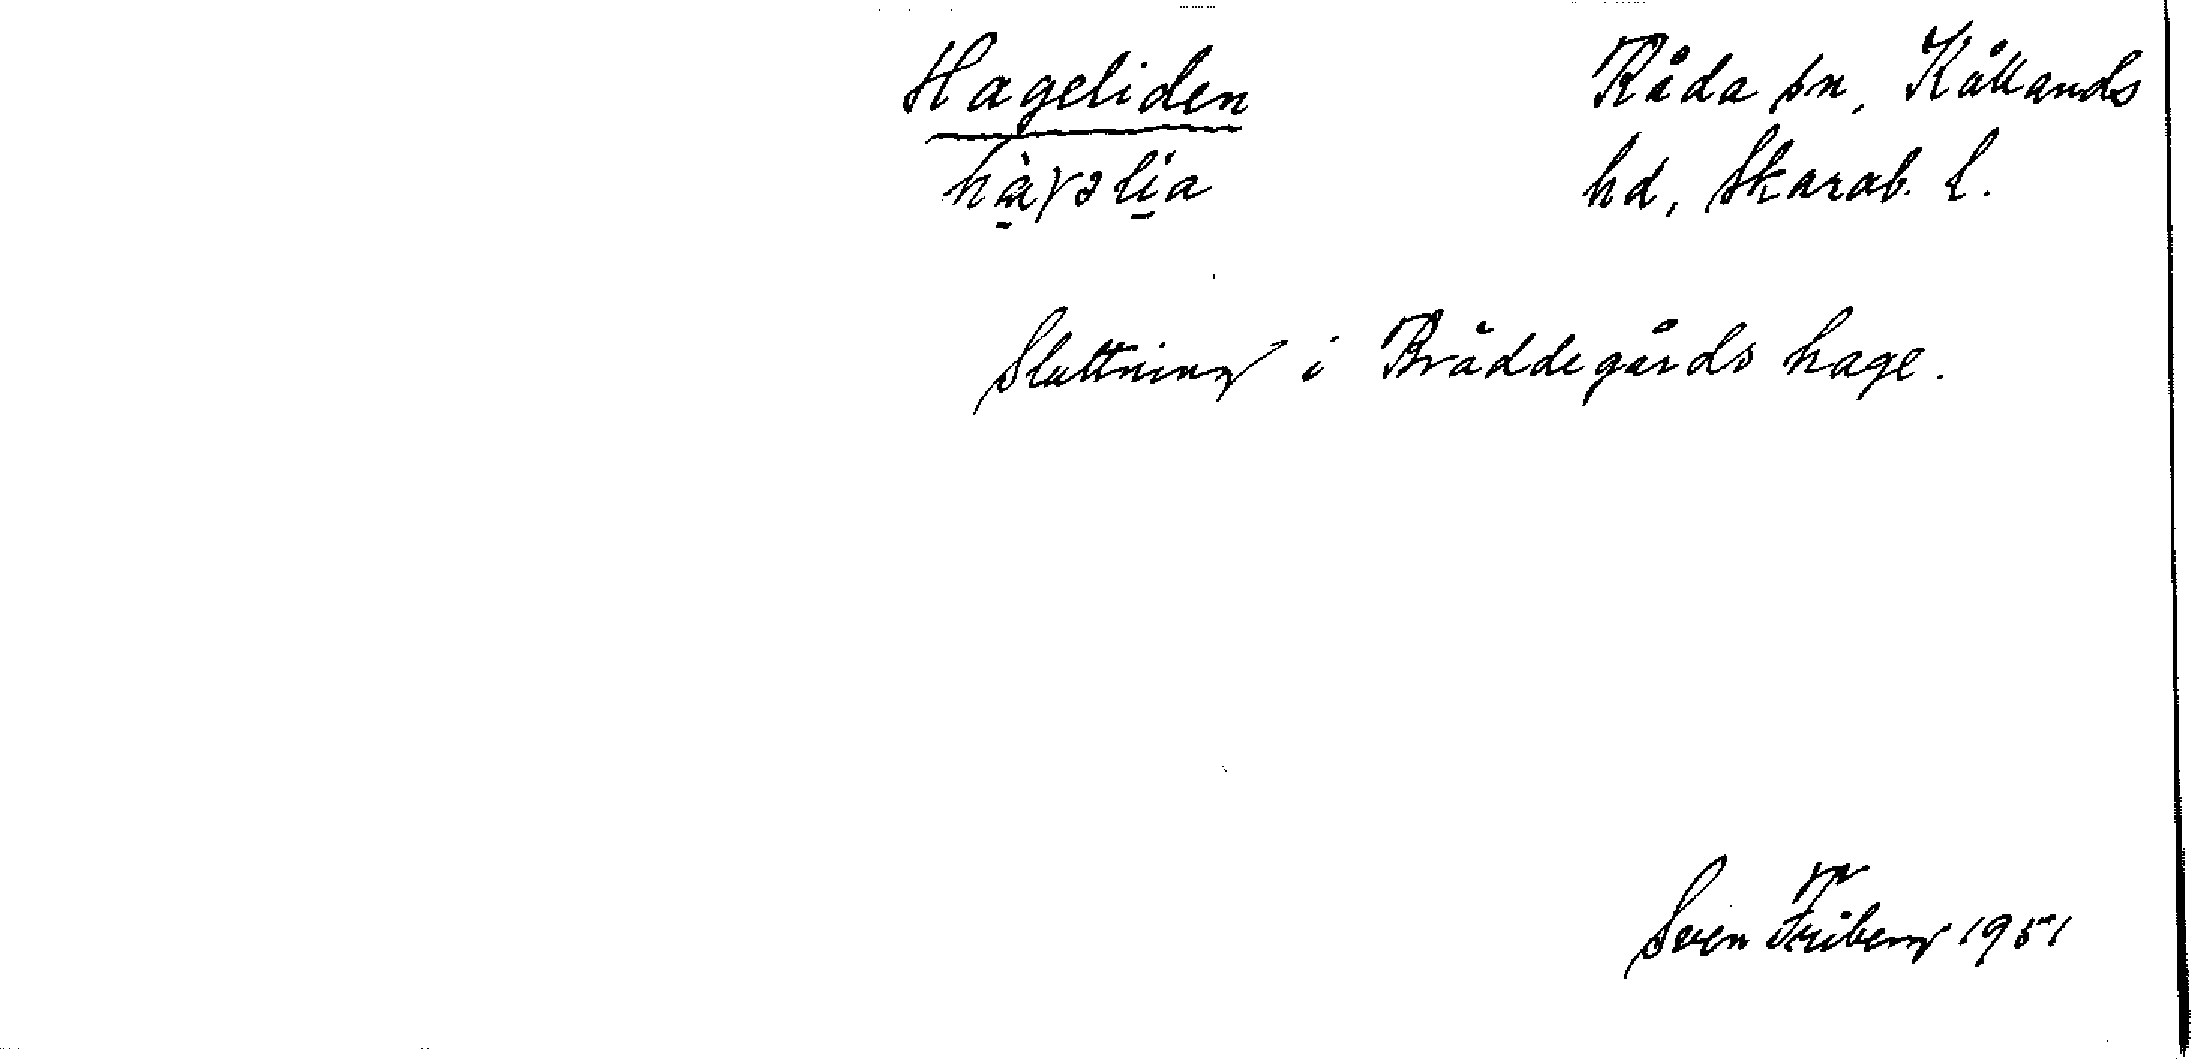 Hageliden
Råda sn, Kållands
hà̱ɣəli̱a
hd, Skarab. l.
Sluttning i Bräddegårds hage.
Sven Friberg 1951